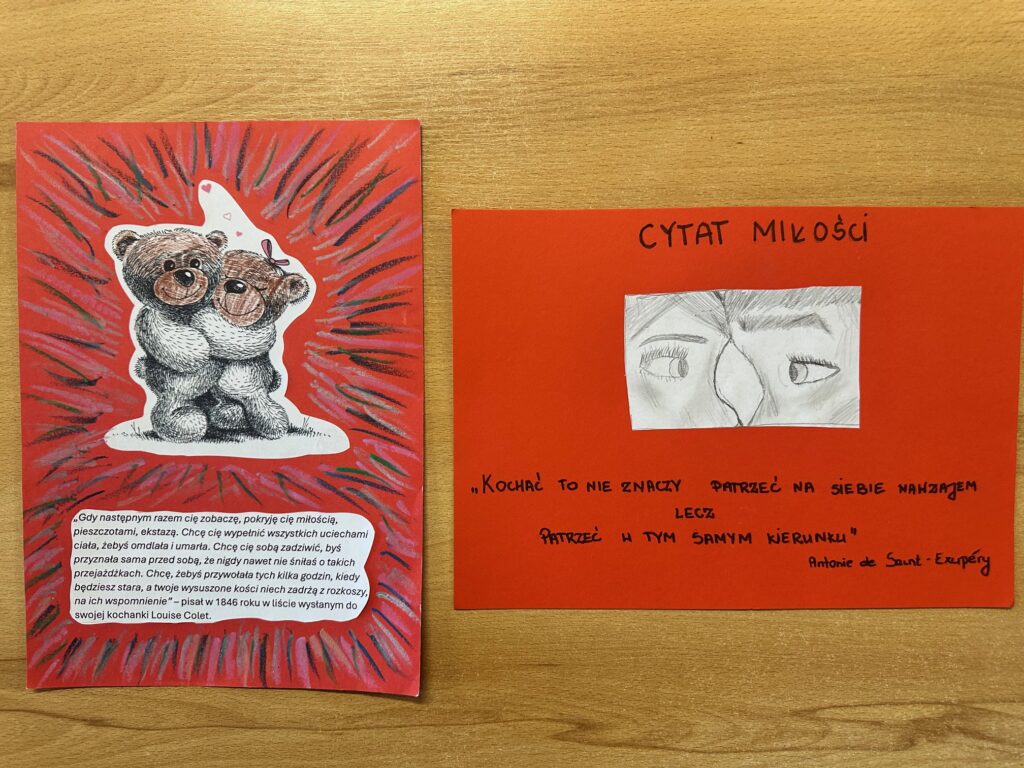 „Gdy następnym razem cię zobaczę, pokryję cię miłością,
pieszczotami, ekstazą. Chcę cię wypełnić wszystkich uciechami
ciała, żebyś omdlała i umarła. Chcę cię sobą zadziwić, byś
przyznała sama przed sobą, że nigdy nawet nie śniłaś o takich
przejażdżkach. Chcę, żebyś przywołała tych kilka godzin, kiedy
będziesz stara, a twoje wysuszone kości niech zadrżą z rozkoszy,
na ich wspomnienie” – pisał w 1846 roku w liście wysłanym do
swojej kochanki Louise Colet.
CYTAT MIŁOŚCi
„KOCHAĆ TO NIE ZNACZY PATRZEĆ NA SIEBIE NAWZAJEM
LECZ
PATRZEĆ W TYM SAMYM KIERUNKU”
Antonie de Saint-Exerpéry